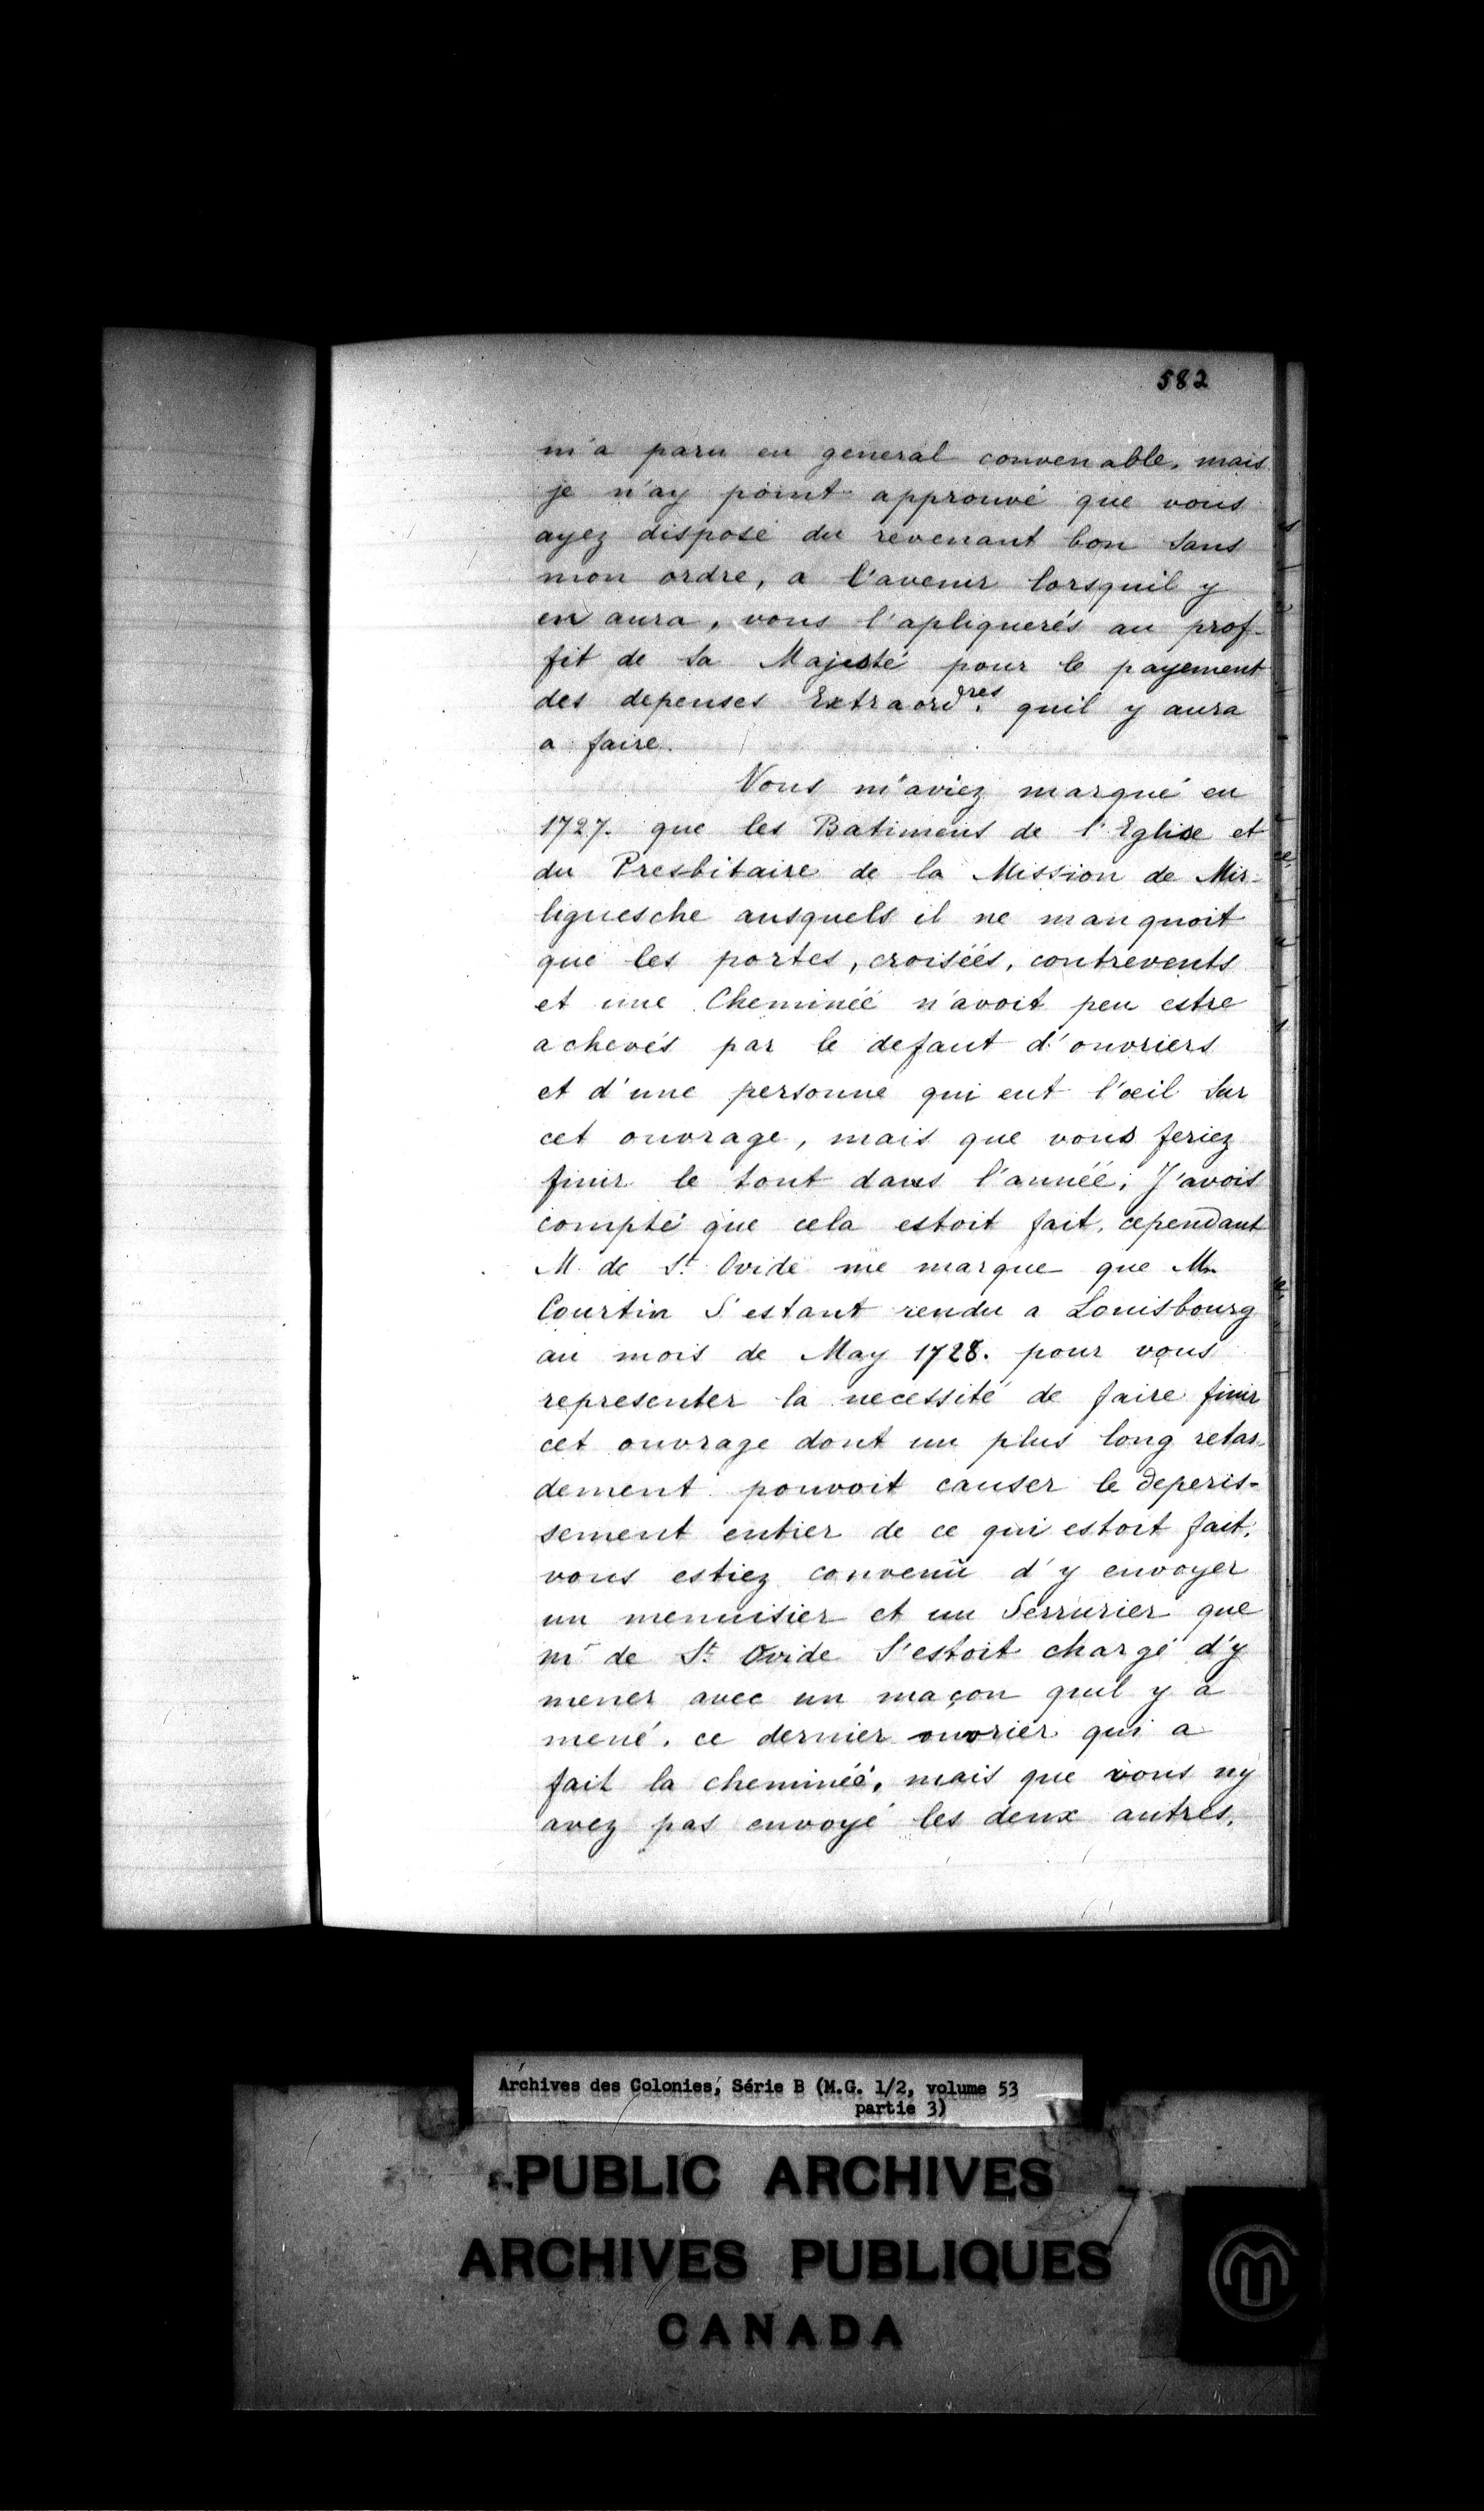 582
m'a paru en general convenable, mais
je n'ay point approuvé que vous
ayez disposé du revenant bon sans
mon ordre, a l'avenir lorsquil y
en aura, vous l'apliquerés au prof-
fit de Sa Majesté pour le payement
des depenses Extraordres. quil y aura
a faire.
Vous m'aviez marqué en
1727. que les Batimens de l'Eglise et
du Presbitaire de la Mission de Mir-
liguesche ausquels il ne manquoit
que les portes, croiséés, contrevents
et une Cheminéé n'avoit peu estre
achevés par le defaut d'ouvriers
et d'une personne qui eut l'œil Sur
cet ouvrage, mais que vous feriez
finir le tout dans l'annéé; J'avois
compté que cela estoit fait, cependant
M. de St. Ovide me marque que Mr
Courtin S'estant rendu a Louisbourg
au mois de May 1728. pour vous
representer la necessité de faire finir
cet ouvrage dont un plus long retar-
dement pouvoit causer le deperis-
sement entier de ce qui estoit fait,
vous estiez convenu d'y envoyer
un menuisier et un Serrurier que
mr de St. Ovide S'estoit chargé d'y
mener avec un maçon quil y a
mené. ce dernier ouvrier qui a
fait la cheminéé, mais que vous ny
avez pas envoyé les deux autres,
Archives des Colonies, Série B (M.G. 1/2, volume 53
partie 3)
PUBLIC ARCHIVES
ARCHIVES PUBLIQUES
CANADA